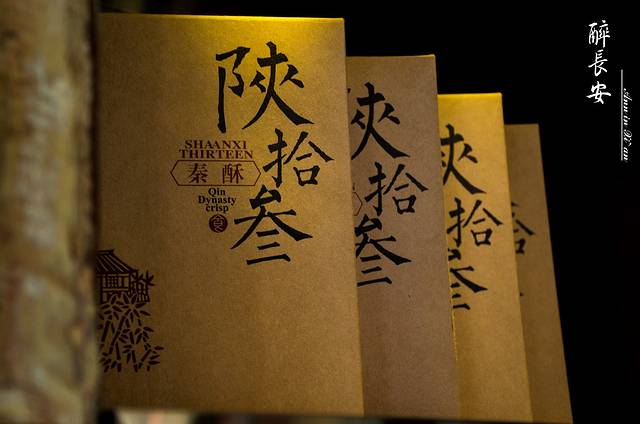 陝拾叁
SHAANXI
THIRTEEN
秦酥
Qin
Dynasty
crisp
陝拾叁
陝拾叁
拾
醉長安
Ann in Xi'an